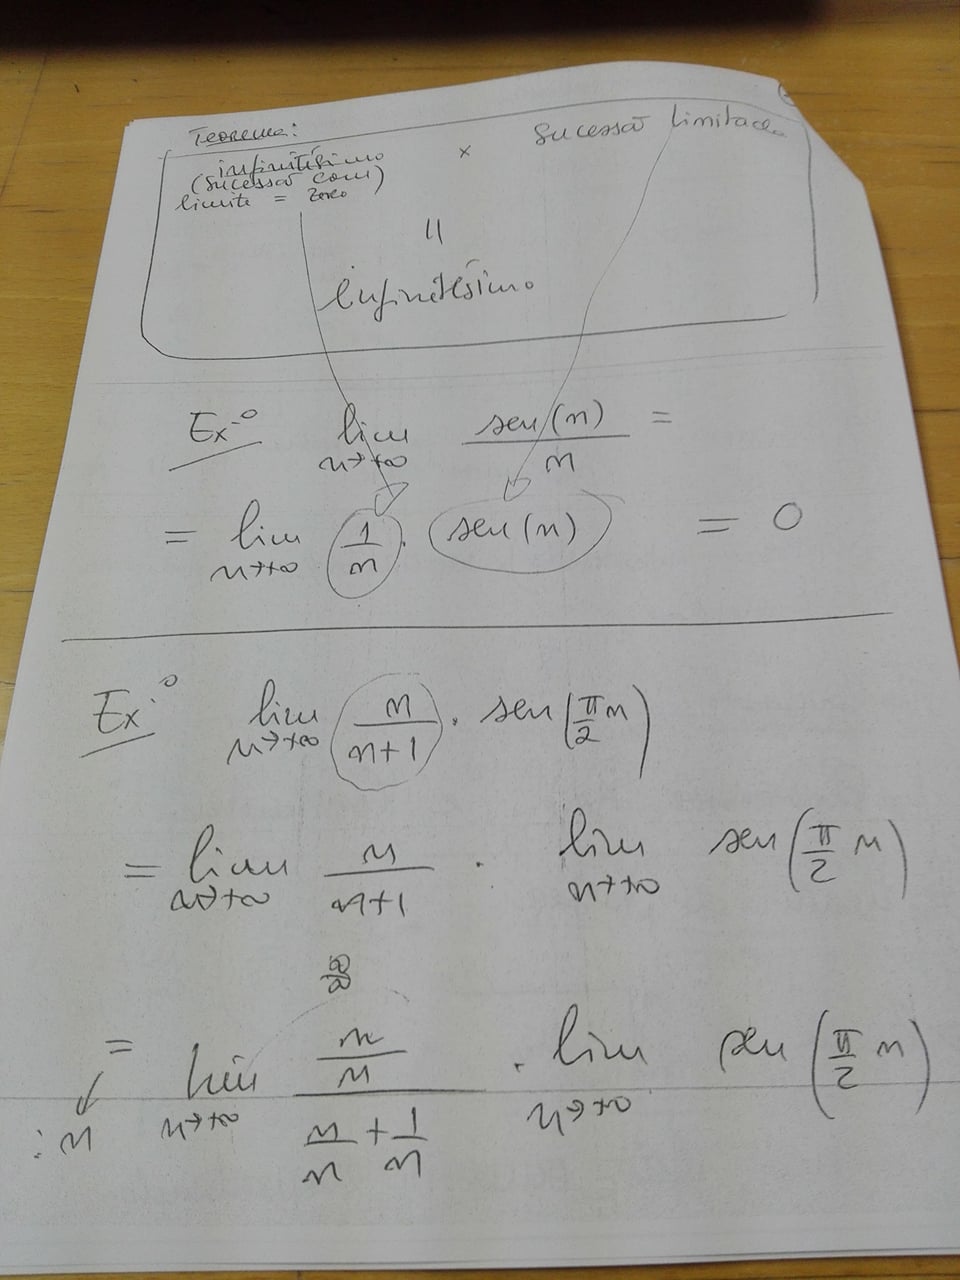 Teorema:
infinitésimo × sucessão limitada
(sucessão com)
limite = zero
=
infinitésimo
Ex.º lim n→+∞ sen(n)/n =
= lim n→+∞ 1/n · sen(n) = 0
Ex.º lim n→+∞ n/(n+1) · sen(π/2 n)
= lim n→+∞ n/(n+1) · lim n→+∞ sen(π/2 n)
∞/∞
= lim n→+∞ (n/n)/(n/n + 1/n) · lim n→+∞ sen(π/2 n)
: n